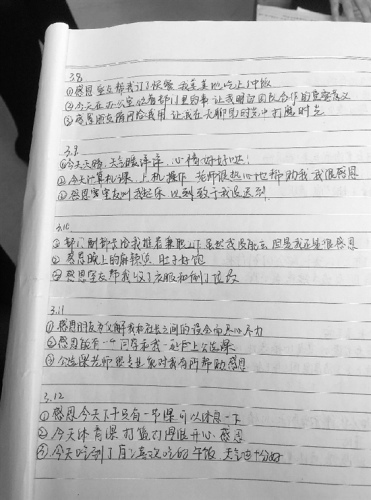 3.8
①感恩室友帮我订了快餐 我来其他吃上了中饭
②今天在办公室值着部门里的事 让我明白团队合作的重要意义
③感恩朋友陪同给我用 让我在无聊里的时光中打磨时光
3.9
①今天天晴, 天气晴洋洋, 心情好好哦!
②今天计算机课, 上机操作 老师很热心地帮助我 我很感恩
③感恩室友叫我起床 以致我于我没迟到
3.10
①部门副部长给我推荐兼职工作 虽然我没能去 但是我还是很感恩
②感恩晚上的麻辣烫 肚子好饱
③感恩室友帮我收了衣服和倒了垃圾
3.11
①感恩朋友为化解我和社长之间的误会而尽心尽力
②感恩能有一个同学和我一起上公选课
③公选课老师很专业 能对我有所帮助 感恩
3.12
①感恩今天下午只有一节课可以休息一下
②今天体育课 打篮打得很开心 感恩
③今天吃到了自己喜欢吃的午饭 天气也恰好